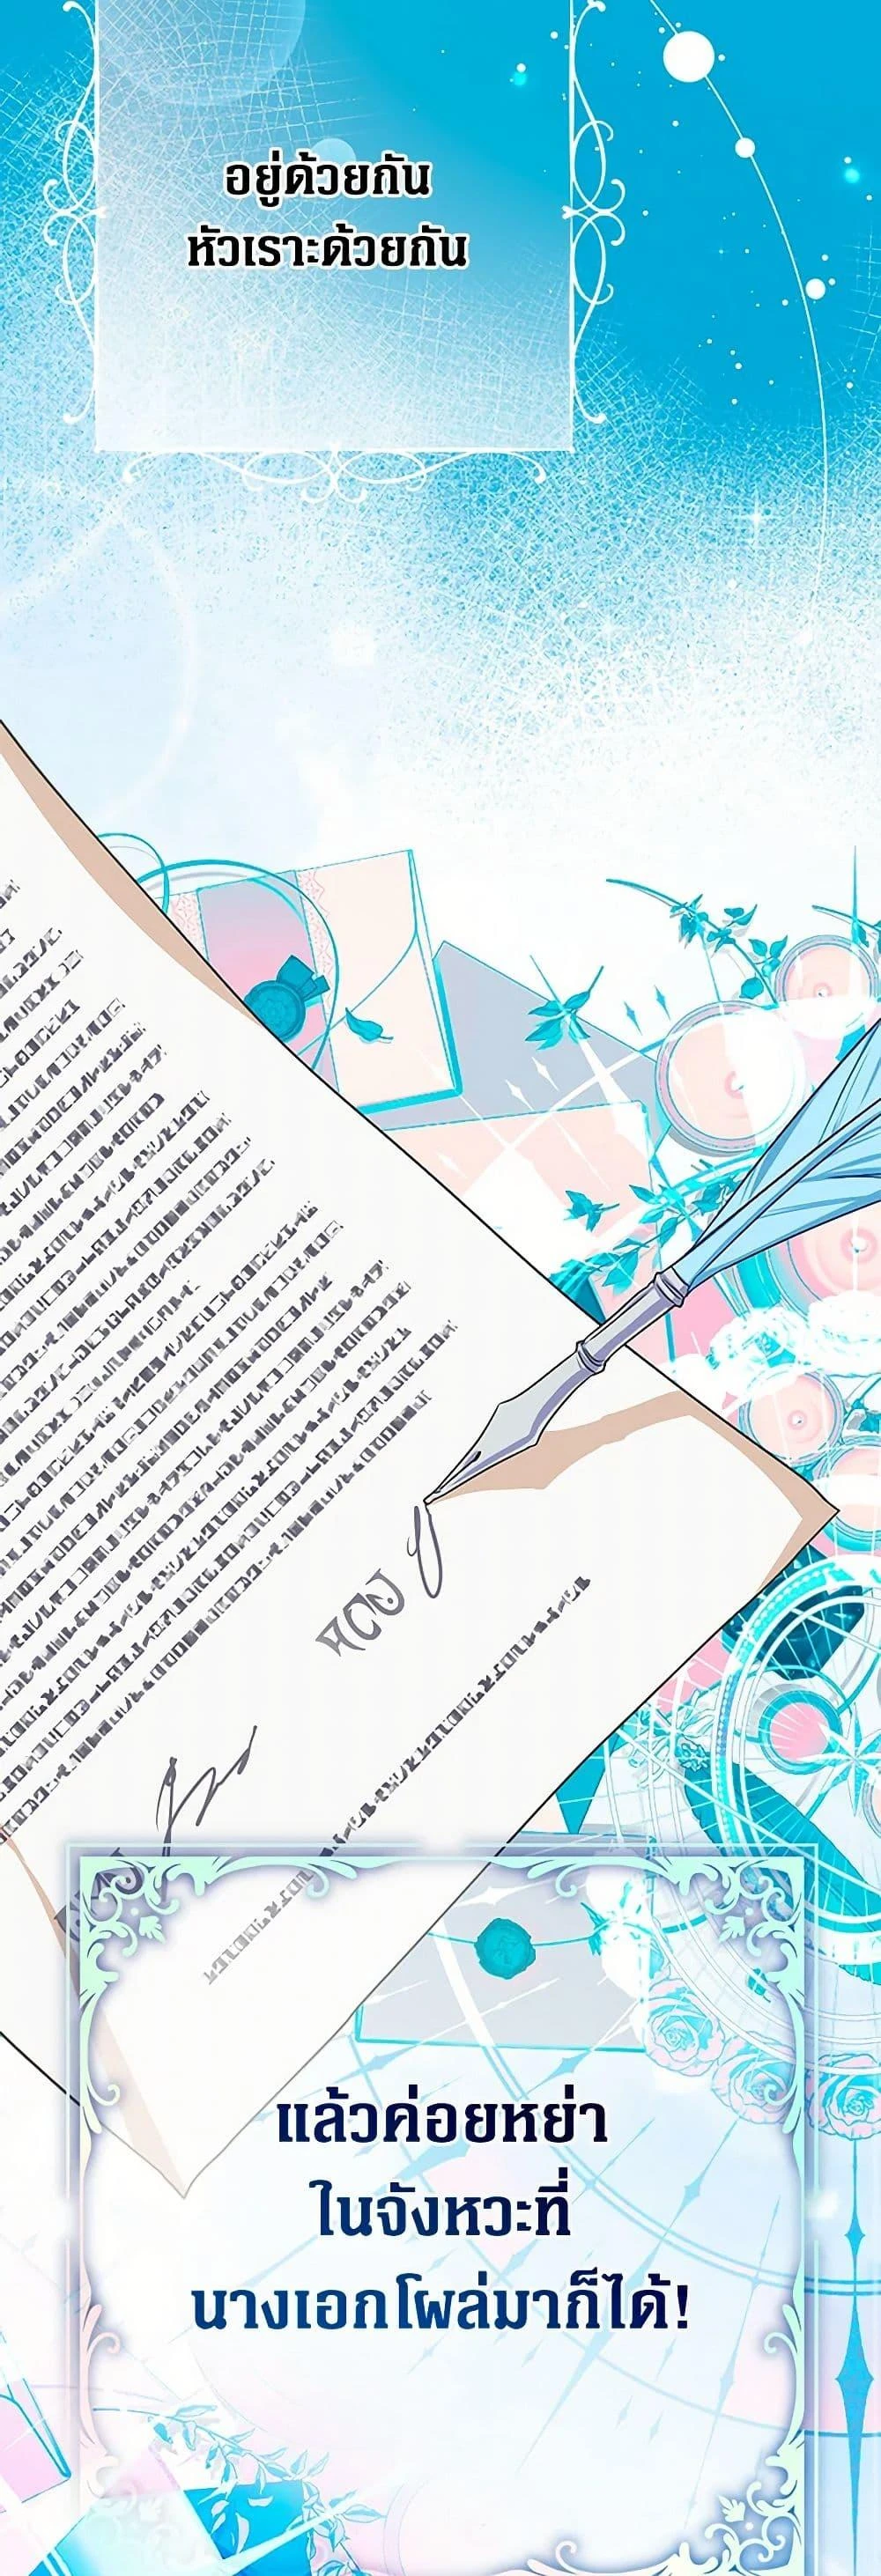 อยู่ด้วยกัน
หัวเราะด้วยกัน
แล้วค่อยหย่า
ในจังหวะที่
นางเอกโผล่มาก็ได้!